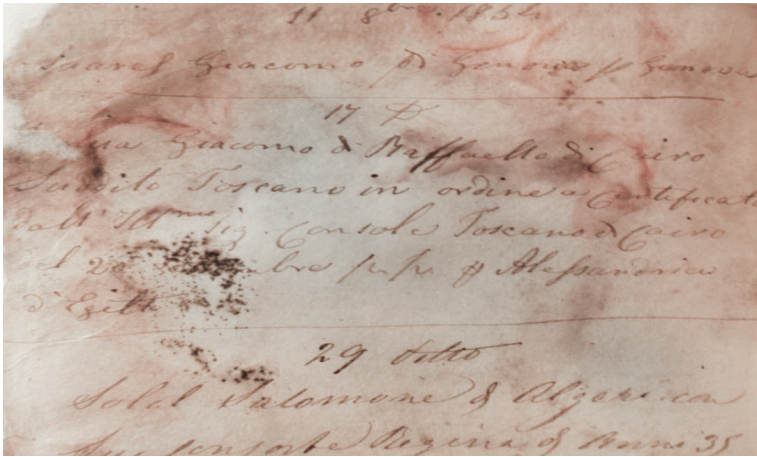 11 8bre 1854
Suares Giacomo di Genova p Genova
17 Do
Giacomo di Raffaello di Cairo
Suddito Toscano in ordine a Certificato
dall' Illmo Sig. Console Toscano di Cairo
del 20 p. p. p Alessandria
d'Egitto
29 detto
Solal Salomone di Algeri con
sua consorte Regina di Anni 35